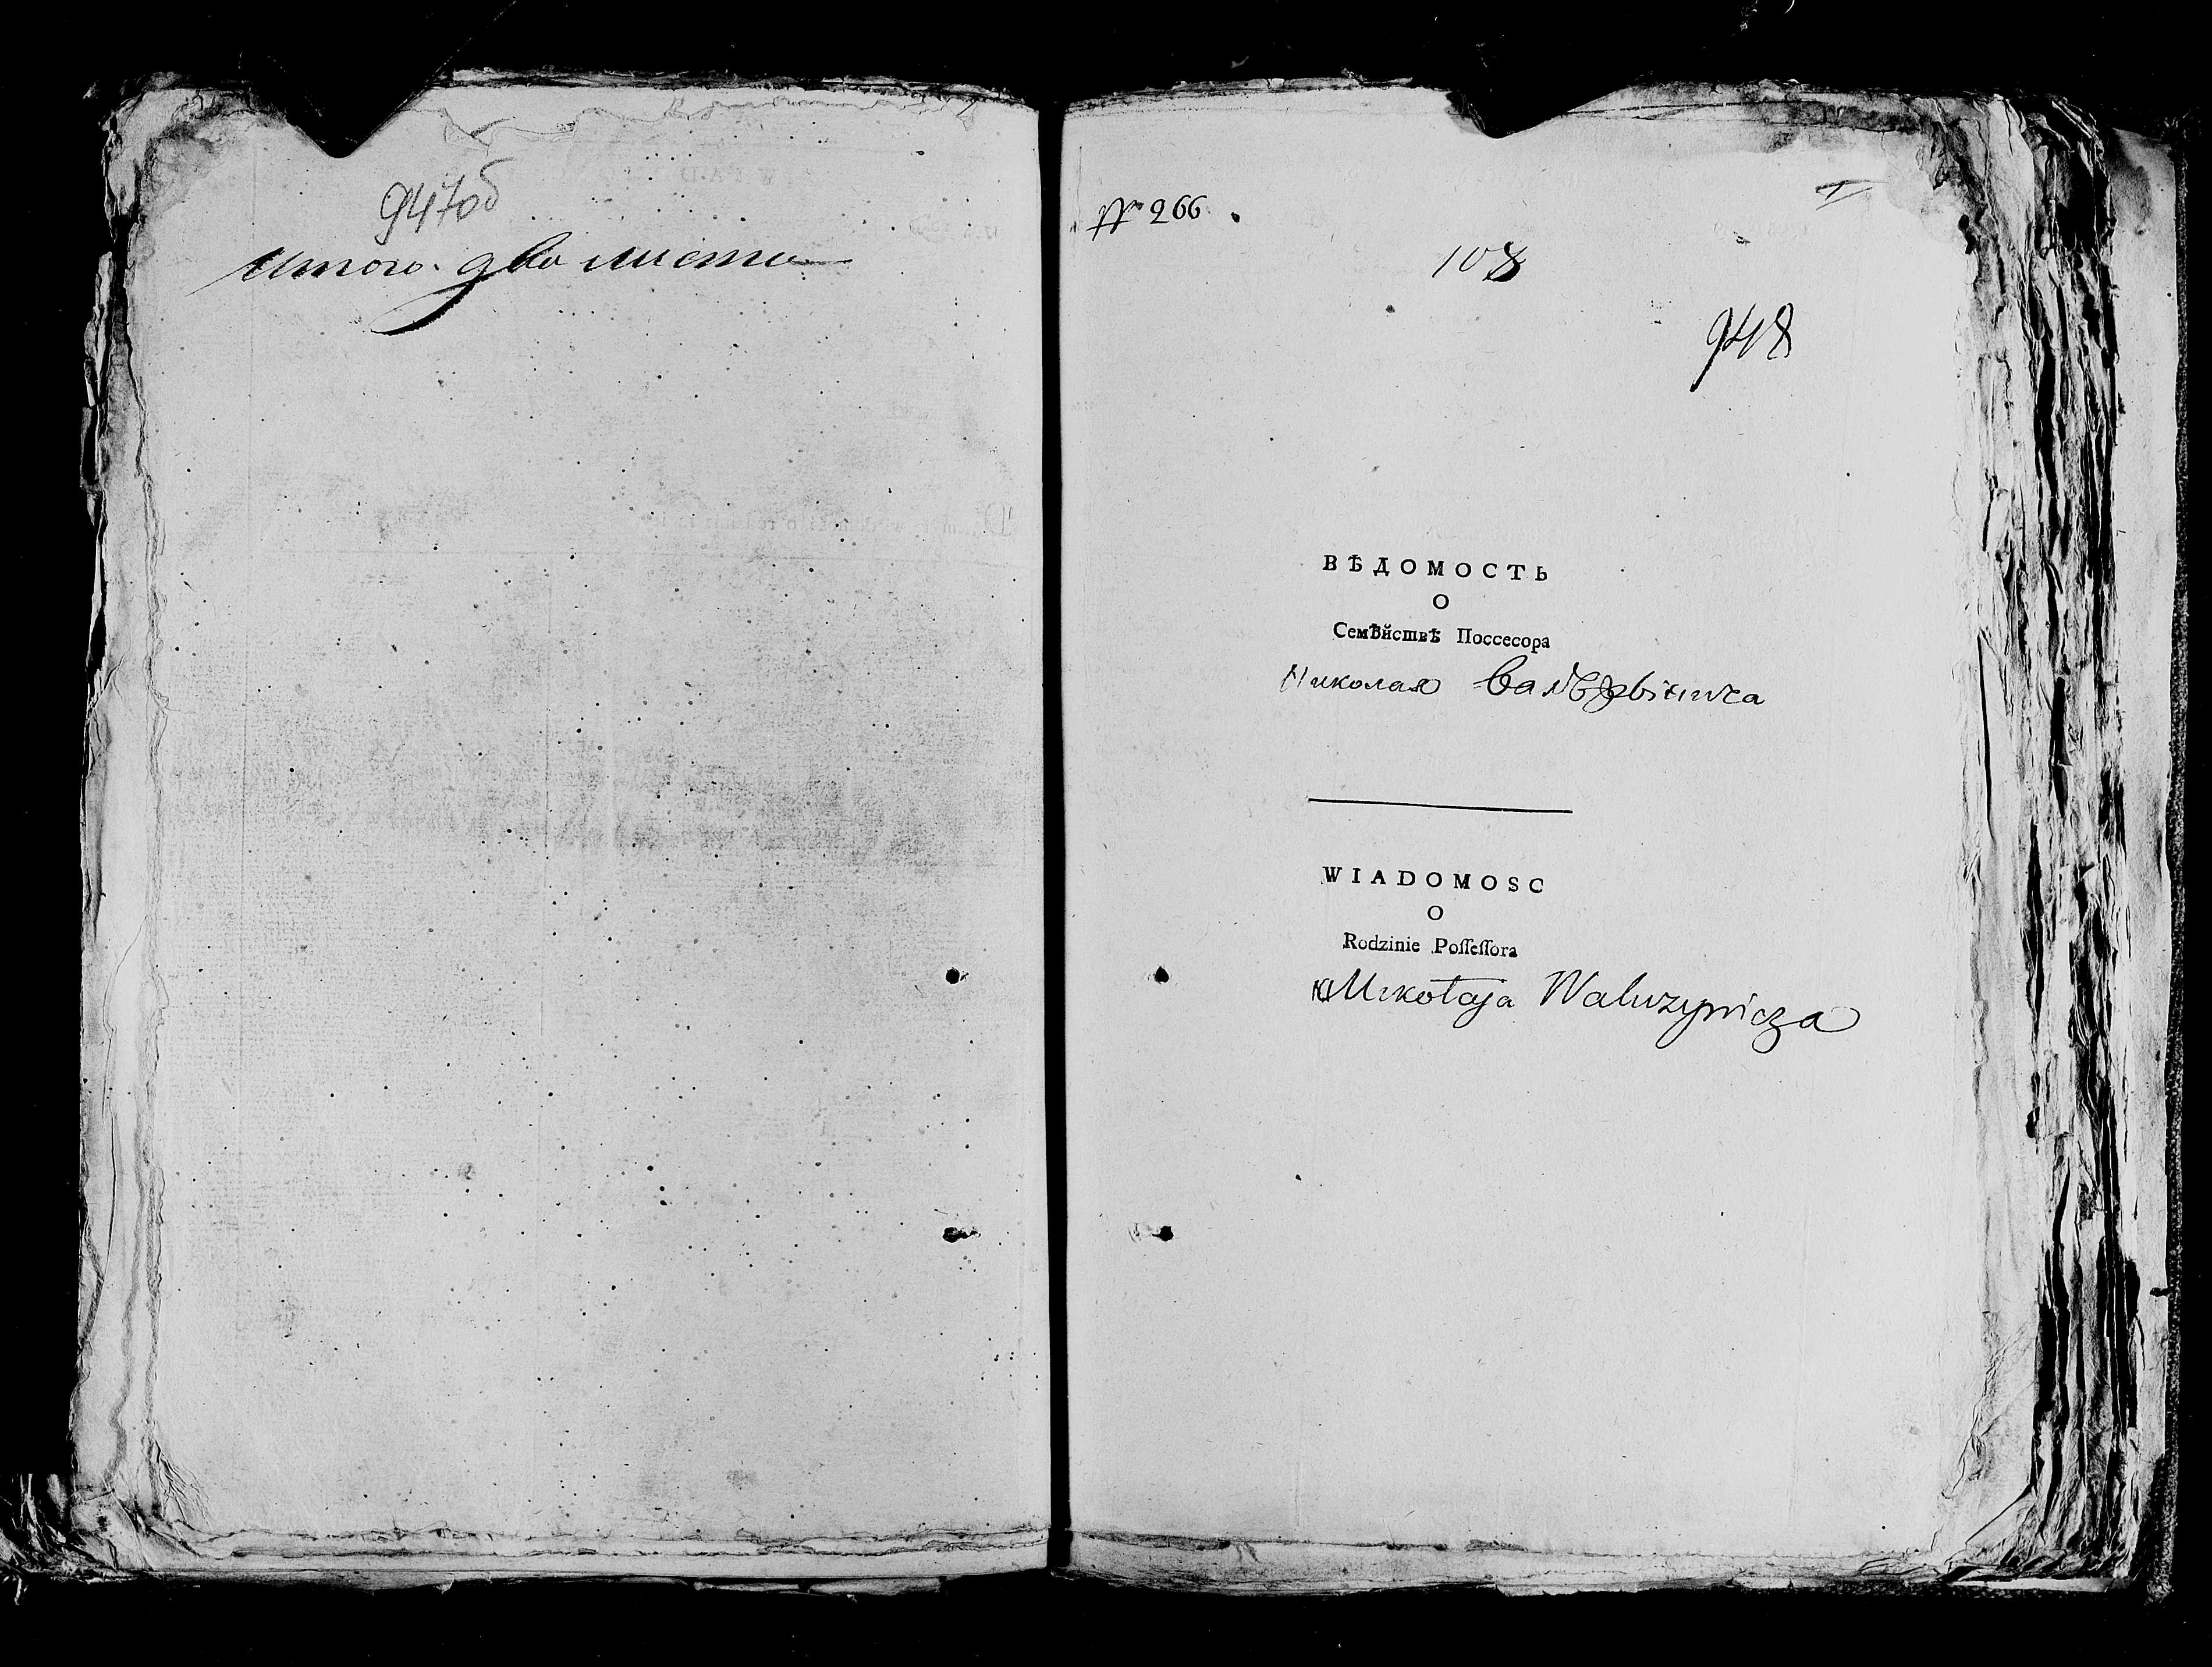 947об
Итого два листа
№ 266.
108
948
ВѢДОМОСТЬ
О
Семѣйствѣ Поссесора
Николая
WIADOMOSC
O
Rodzinie Poſſeſſora
Mikołaja Waluzynicza